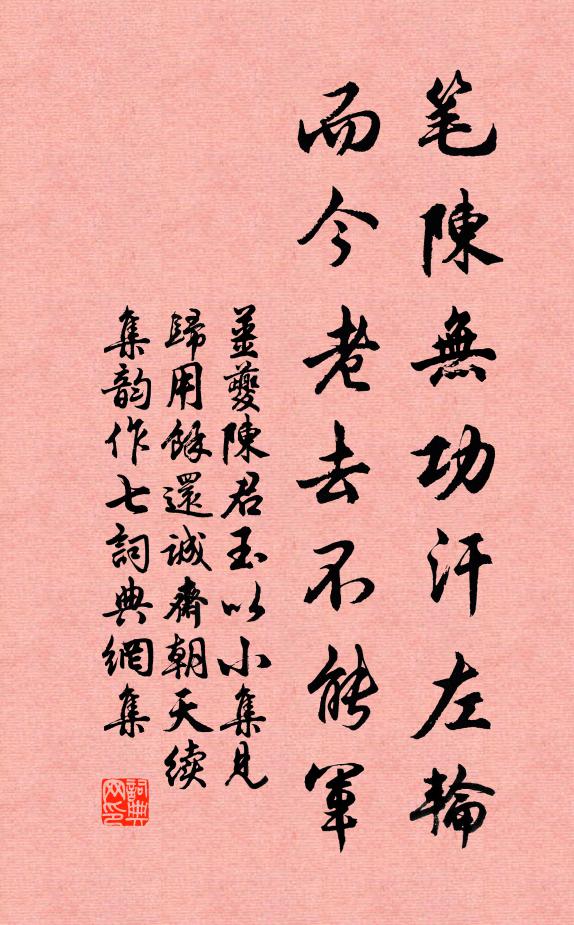 笔陳無功汗左輪
而今老去不能軍
薑夔陳君玉以小集见
歸用餘還誠齋朝天续
集韵作七詞典網集
詞典
网印